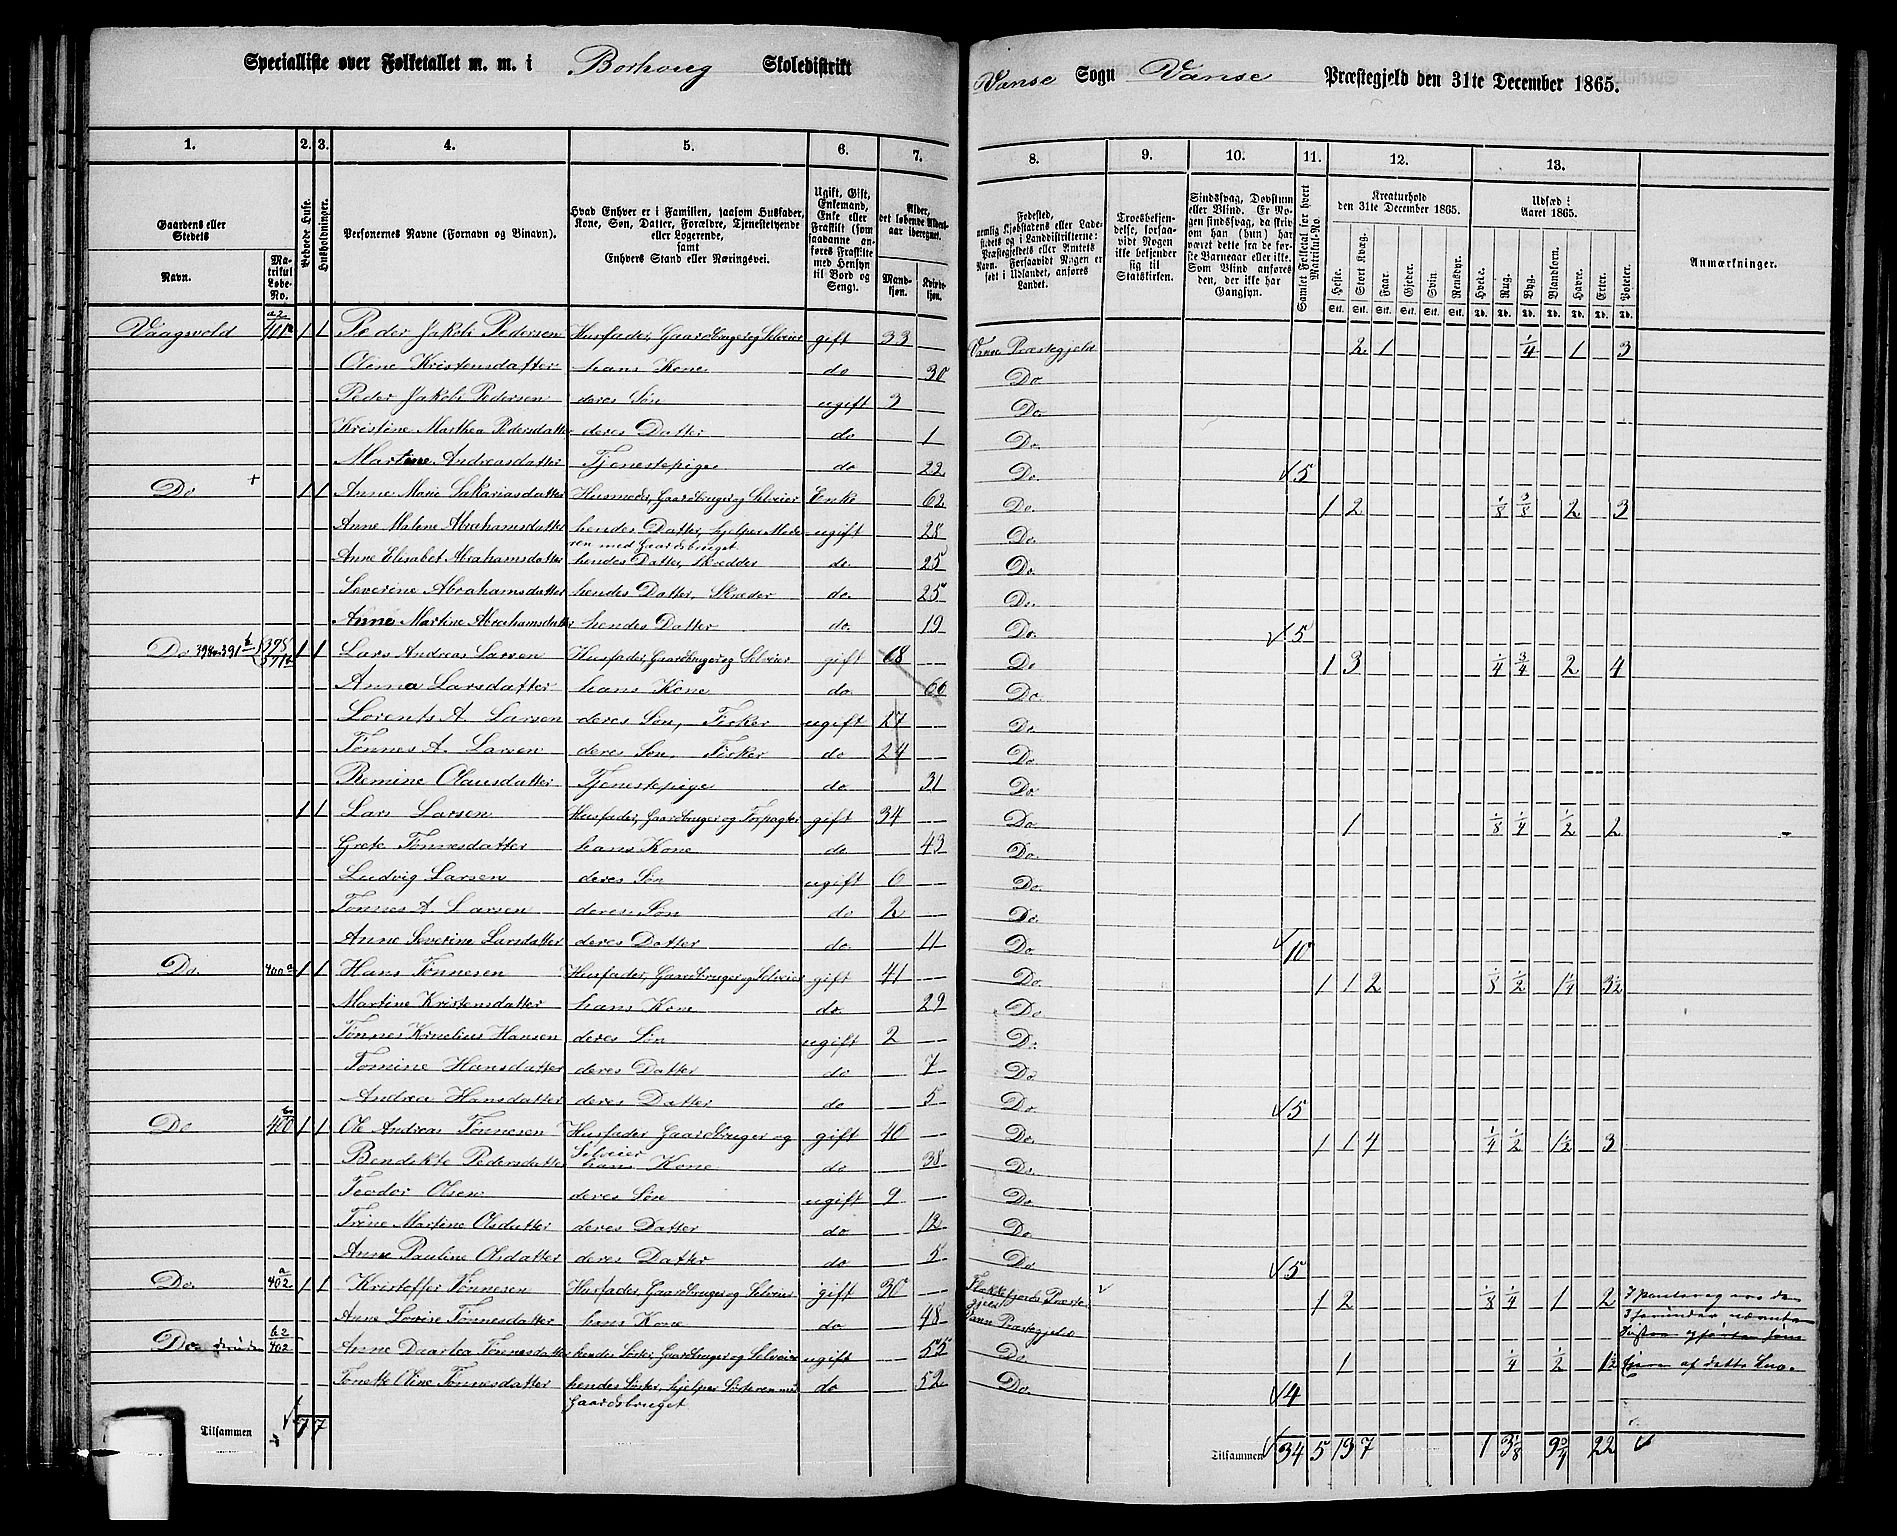 Specialliste over Folketallet m. m. i Borhoug Skoledistrikt Vanse Sogn Vanse Præstegjeld den 31te December 1865.
1. 2. 3. 4. 5. 6. 7. 8. 9. 10. 11. 12. 13.
Gaardens eller Stedets
Navn. Matrikul Løbe-No.
Beboede Huse.
Husholdninger.
Personernes Navne (Fornavn og Binavn).
Hvad Enhver er i Familien, saasom Husfader, Kone, Søn, Datter, Forældre, Tjenestetyende eller Logerende, samt Enhvers Stand eller Næringsvei.
Ugift, Gift, Enkemand, Enke eller Fraskilt (som saadanne anføres Fraskilte med Hensyn til Bord og Seng).
Alder, det løbende Alders-aar iberegnet.
Mandkjøn. Kvindekjøn.
Fødested, nemlig Kjøbstadens eller Ladestedets og i Landdistrikterne: Præstegjeldets eller Amtets Navn. Forsaavidt Nogen er født i Udlandet, anføres Landet.
Troesbekjendelse, forsaavidt Nogen ikke bekjender sig til Statskirken.
Sindssvag, Døvstum eller Blind. Er Nogen sindssvag, da skriv om han (hun) har været dette fra de første Barneaar eller ikke. Som Blind anføres den, der ikke har Gangsyn.
Samlet Folketal for hvert Matrikul-No.
Kreaturhold den 31te December 1865.
Heste. Stort Kvæg. Faar. Gjeder. Svin. Rensdyr.
Udsæd i Aaret 1865.
Hvede. Rug. Byg. Blandkorn. Havre. Erter. Poteter.
Anmærkninger.
Vaagsvold 401 a2 1 1 Peder Jakob Pedersen Husfader, Gaardbruger og Selveier gift 33 Vanse Præstegjeld 2 1 1/4 1 3
Oline Kristensdatter hans Kone do 30 Do
Peder Jakob Pedersen deres Søn ugift 3 Do.
Kristine Marthea Pedersdatter deres Datter do 1 Do
Martine Andreasdatter Tjenestepige do 22 Do. 5
Do + 1 1 Anne Marie Sakariasdatter Husmoder, Gaardbruger og Selveier Enke 62 Do 1 2 1/8 3/8 2 3
Anne Malene Abrahamsdatter hendes Datter, hjelper Moderen med Gaardsbruget ugift 28 Do.
Anne Elisabet Abrahamsdatter hendes Datter, Skredder do. 25 Do.
Severine Abrahamsdatter hendes Datter, Skreder do. 25 Do.
Anne Martine Abrahamsdatter hendes Datter do. 19 Do. 5
Do 1 1 Lars Andreas Larsen Husfader, Gaardbruger og Selveier gift 68 Do 1 3 1/4 3/4 2 4
Anna Larsdatter hans Kone do. 66 Do.
Lorents A. Larsen deres Søn, Fisker ugift 27 Do
Tønnes A. Larsen deres Søn, Fisker do 24 Do.
Remine Olausdatter Tjenestepige do 31 Do
1 1 Lars Larsen Husfader, Gaardbruger og Forpagter gift 34 Do 1 1/8 1/4 1/2 2
Grete Tønnesdatter hans Kone do 43 Do.
Ludvig Larsen deres Søn ugift 6 Do.
Tønnes A Larsen deres Søn do 2 Do.
Anne Severine Larsdatter deres Datter do. 4 Do 10
Do. 400 a 1 1 Hans Tønnesen Husfader, Gaardbruger og Selveier gift 41 Do. 1 1 2 1/8 1/2 1 1/4 3 1/2
Martine Kristensdatter hans Kone do. 29 Do
Tønnes Kornelius Hansen deres Søn ugift 2 Do.
Tomine Hansdatter deres Datter do 7 Do
Andrea Hansdatter deres Datter do 5 Do 5
Do 400 1 1 Ole Andreas Tønnesen Husfader Gaardbruger og Selveier gift 40 Do. 1 1 4 1/4 1/2 1 1/2 3
Bendikte Pedersdatter hans Kone do 38 Do.
Teodor Olsen deres Søn ugift 9 Do
Trine Martine Olsdatter deres Datter do 12 Do
Anne Pauline Olsdatter deres Datter do 5 Do 5
Do. 402 a 1 1 Kristoffer Tønnesen Husfader Gaardbruger og Selveier gift 30 Flekkefjords Præstegjeld 1 2 1/8 1/4 1 2
Anne Lovise Tønnesdatter hans Kone do 48 Vanse Præstegjeld
Do 402 b2 Anne Daarthea Tønnesdatter hendes Søster, Gaardbruger og Selveier ugift 55 Do 1 1/4 1/2 1 1/2
Tonette Oline Tønnesdatter hendes Søster, hjelper Søsteren med Gaardsbruget do 52 Do 4
Tilsammen 7 7
Tilsammen 34 5 13 7 1 3 1/8 22